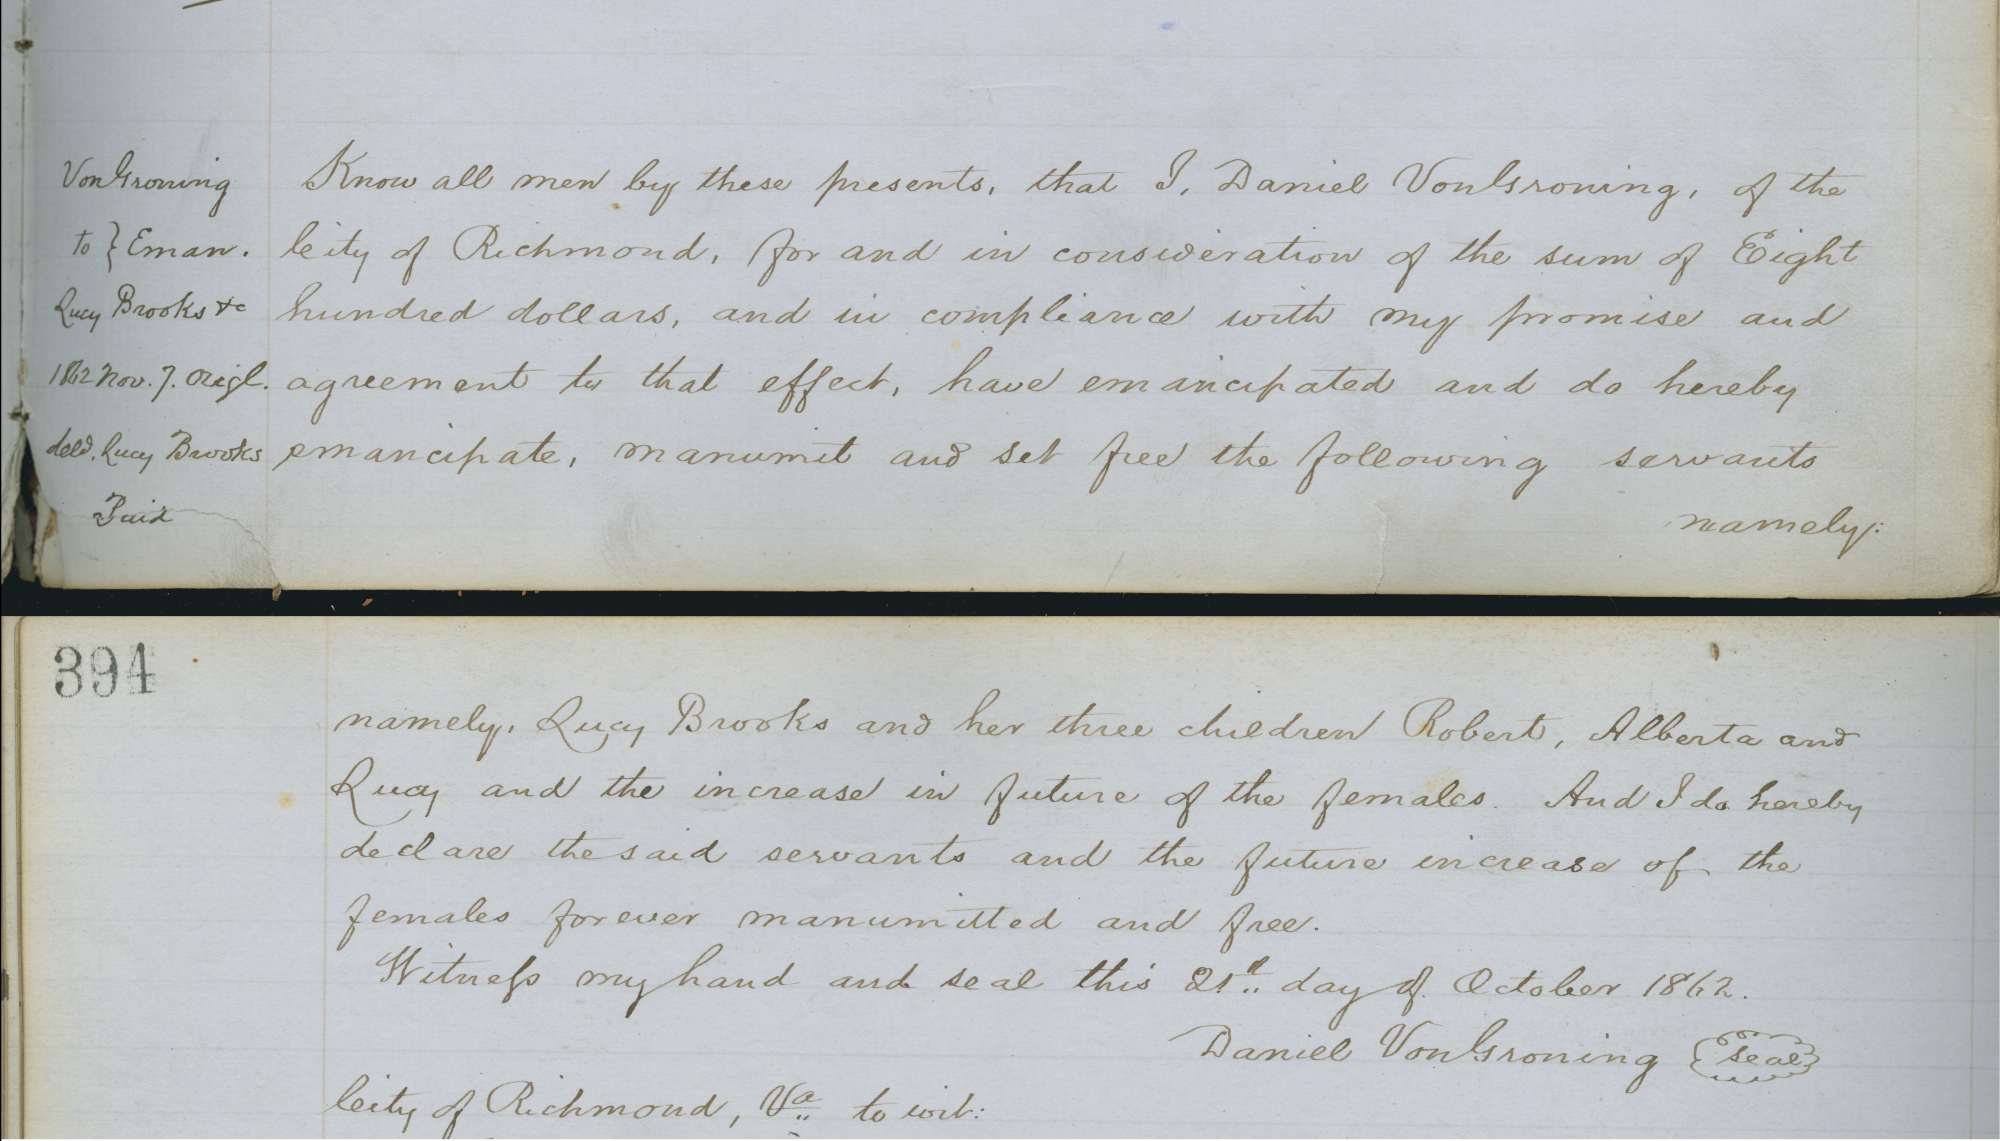 VonGroning
to } Eman.
Lucy Brooks &c
1862 Nov. 7. Origl.
deld. Lucy Brooks
Paid
Know all men by these presents, that I, Daniel VonGroning, of the
City of Richmond, for and in consideration of the sum of Eight
hundred dollars, and in compliance with my promise and
agreement to that effect, have emancipated and do hereby
emancipate, manumit and set free the following servants
namely:
394
namely, Lucy Brooks and her three children Robert, Alberta and
Lucy and the increase in future of the females. And I do hereby
declare the said servants and the future increase of the
females forever manumitted and free.
Witness my hand and seal this 21st day of October 1862.
Daniel VonGroning seal
City of Richmond, Va to wit: